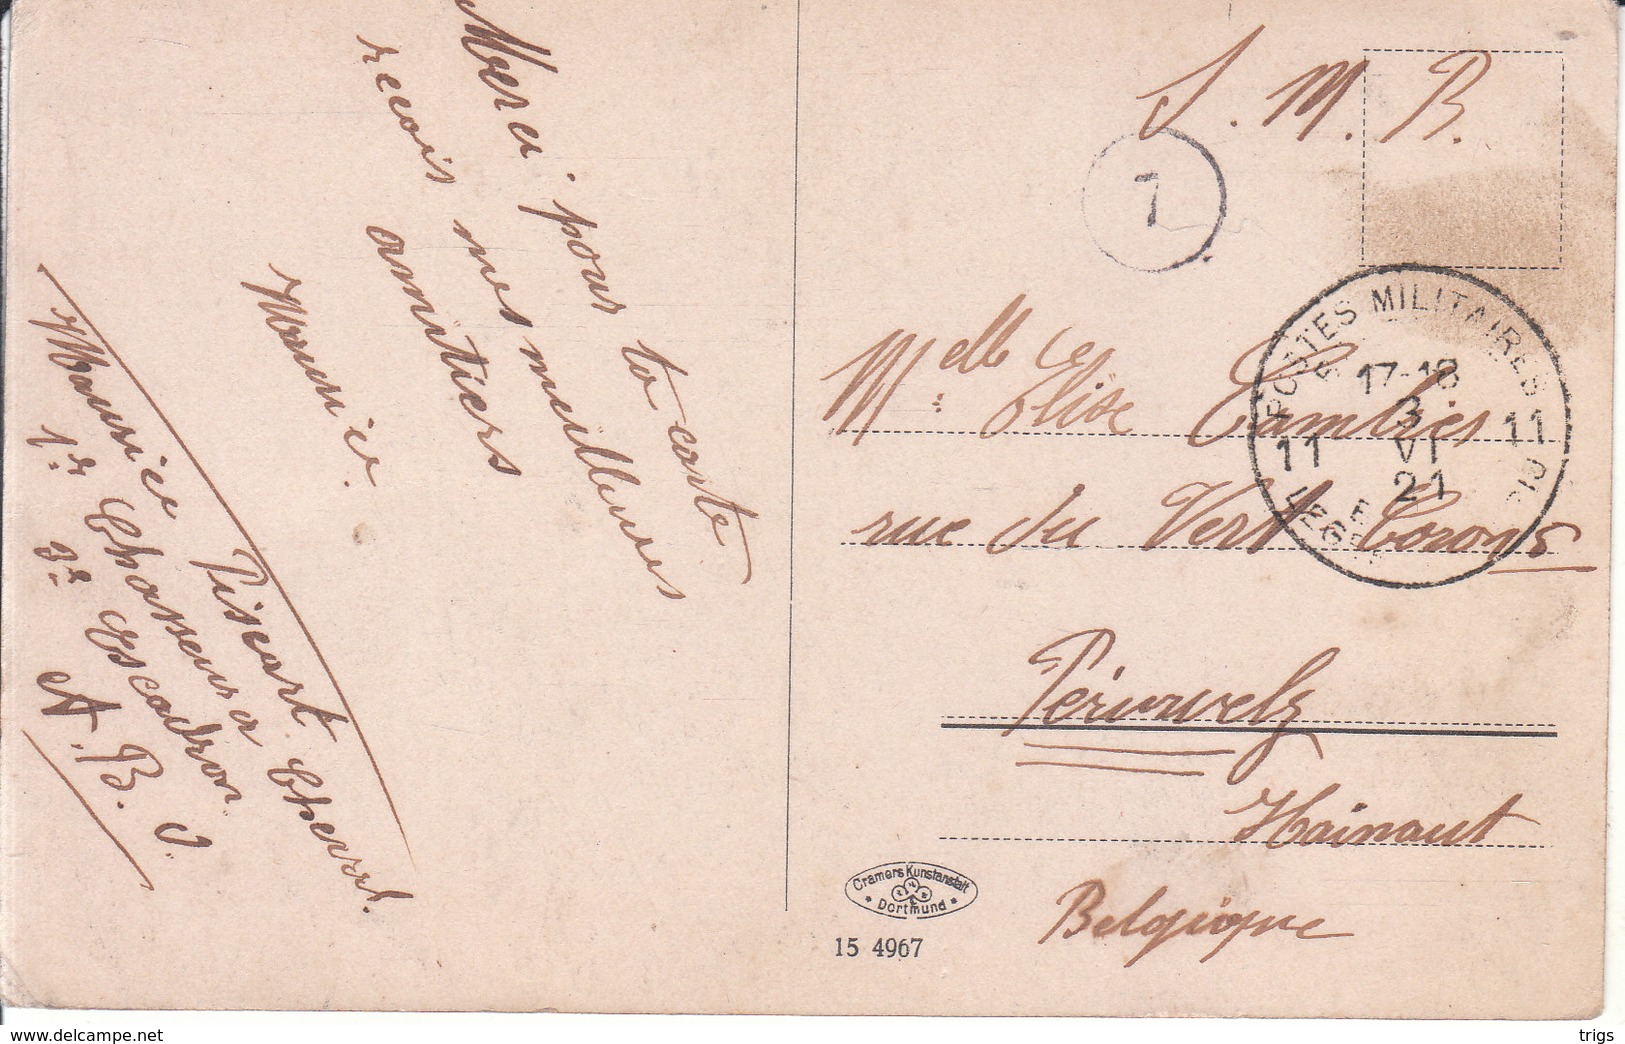 Merci pour ta carte
recois mes meilleures
amitiers
Maurice.
Maurice Piscart
1er Chasseur a Cheval.
3e Escadron
A. B. O.
S. M. B.
7
POSTES MILITAIRES
17-18
3
11 VI 11
21
Melle Elise Cambies
rue du Vert Corons
Péruwelz
Hainaut
Belgique
Cramers Kunstanstalt
Dortmund
15 4967
www.delcampe.net
trigs